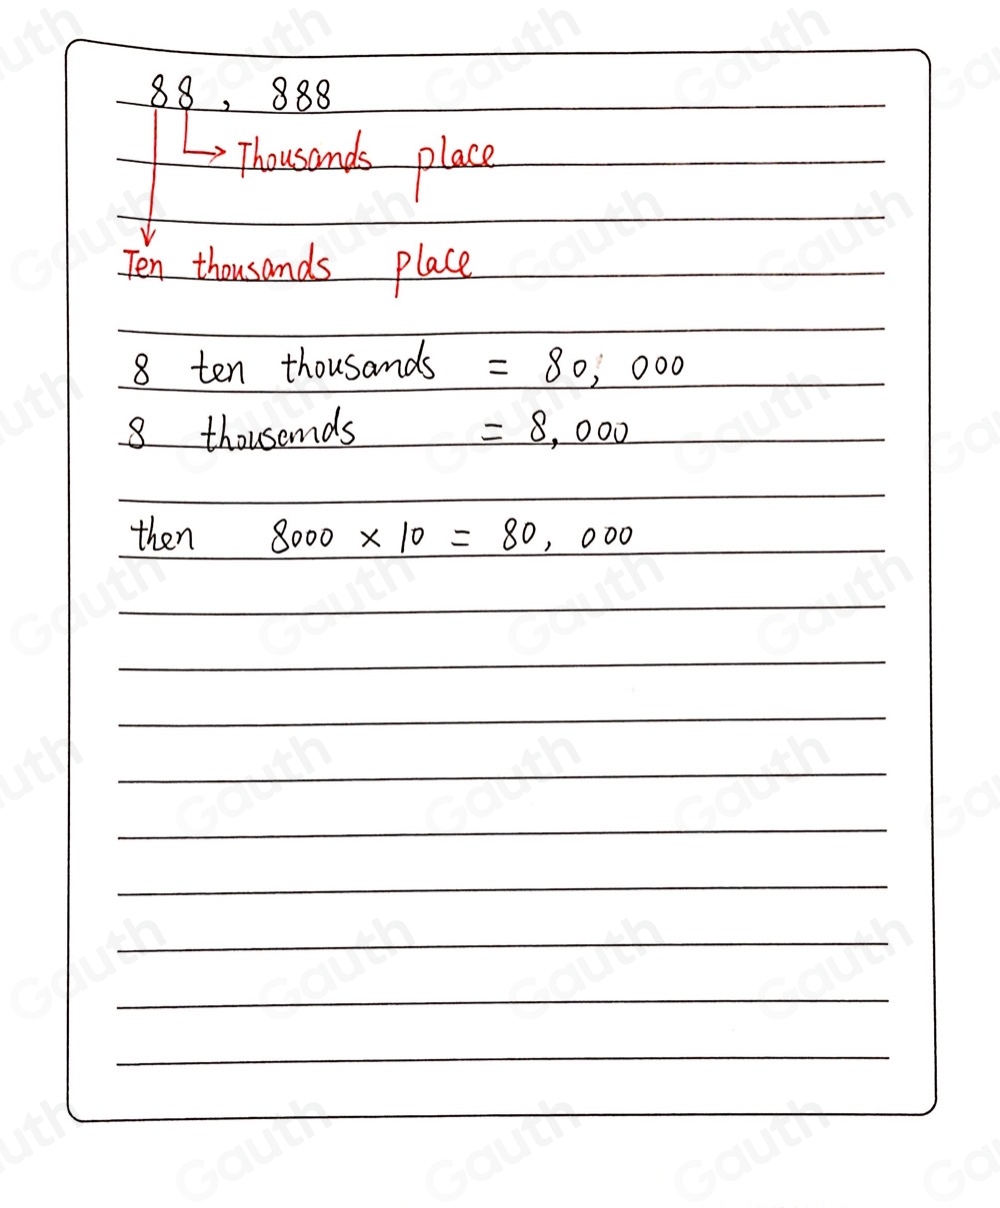 88, 888
Thousands place
Ten thousands place
8 ten thousands = 80, 000
8 thousands = 8, 000
then 8000 × 10 = 80, 000